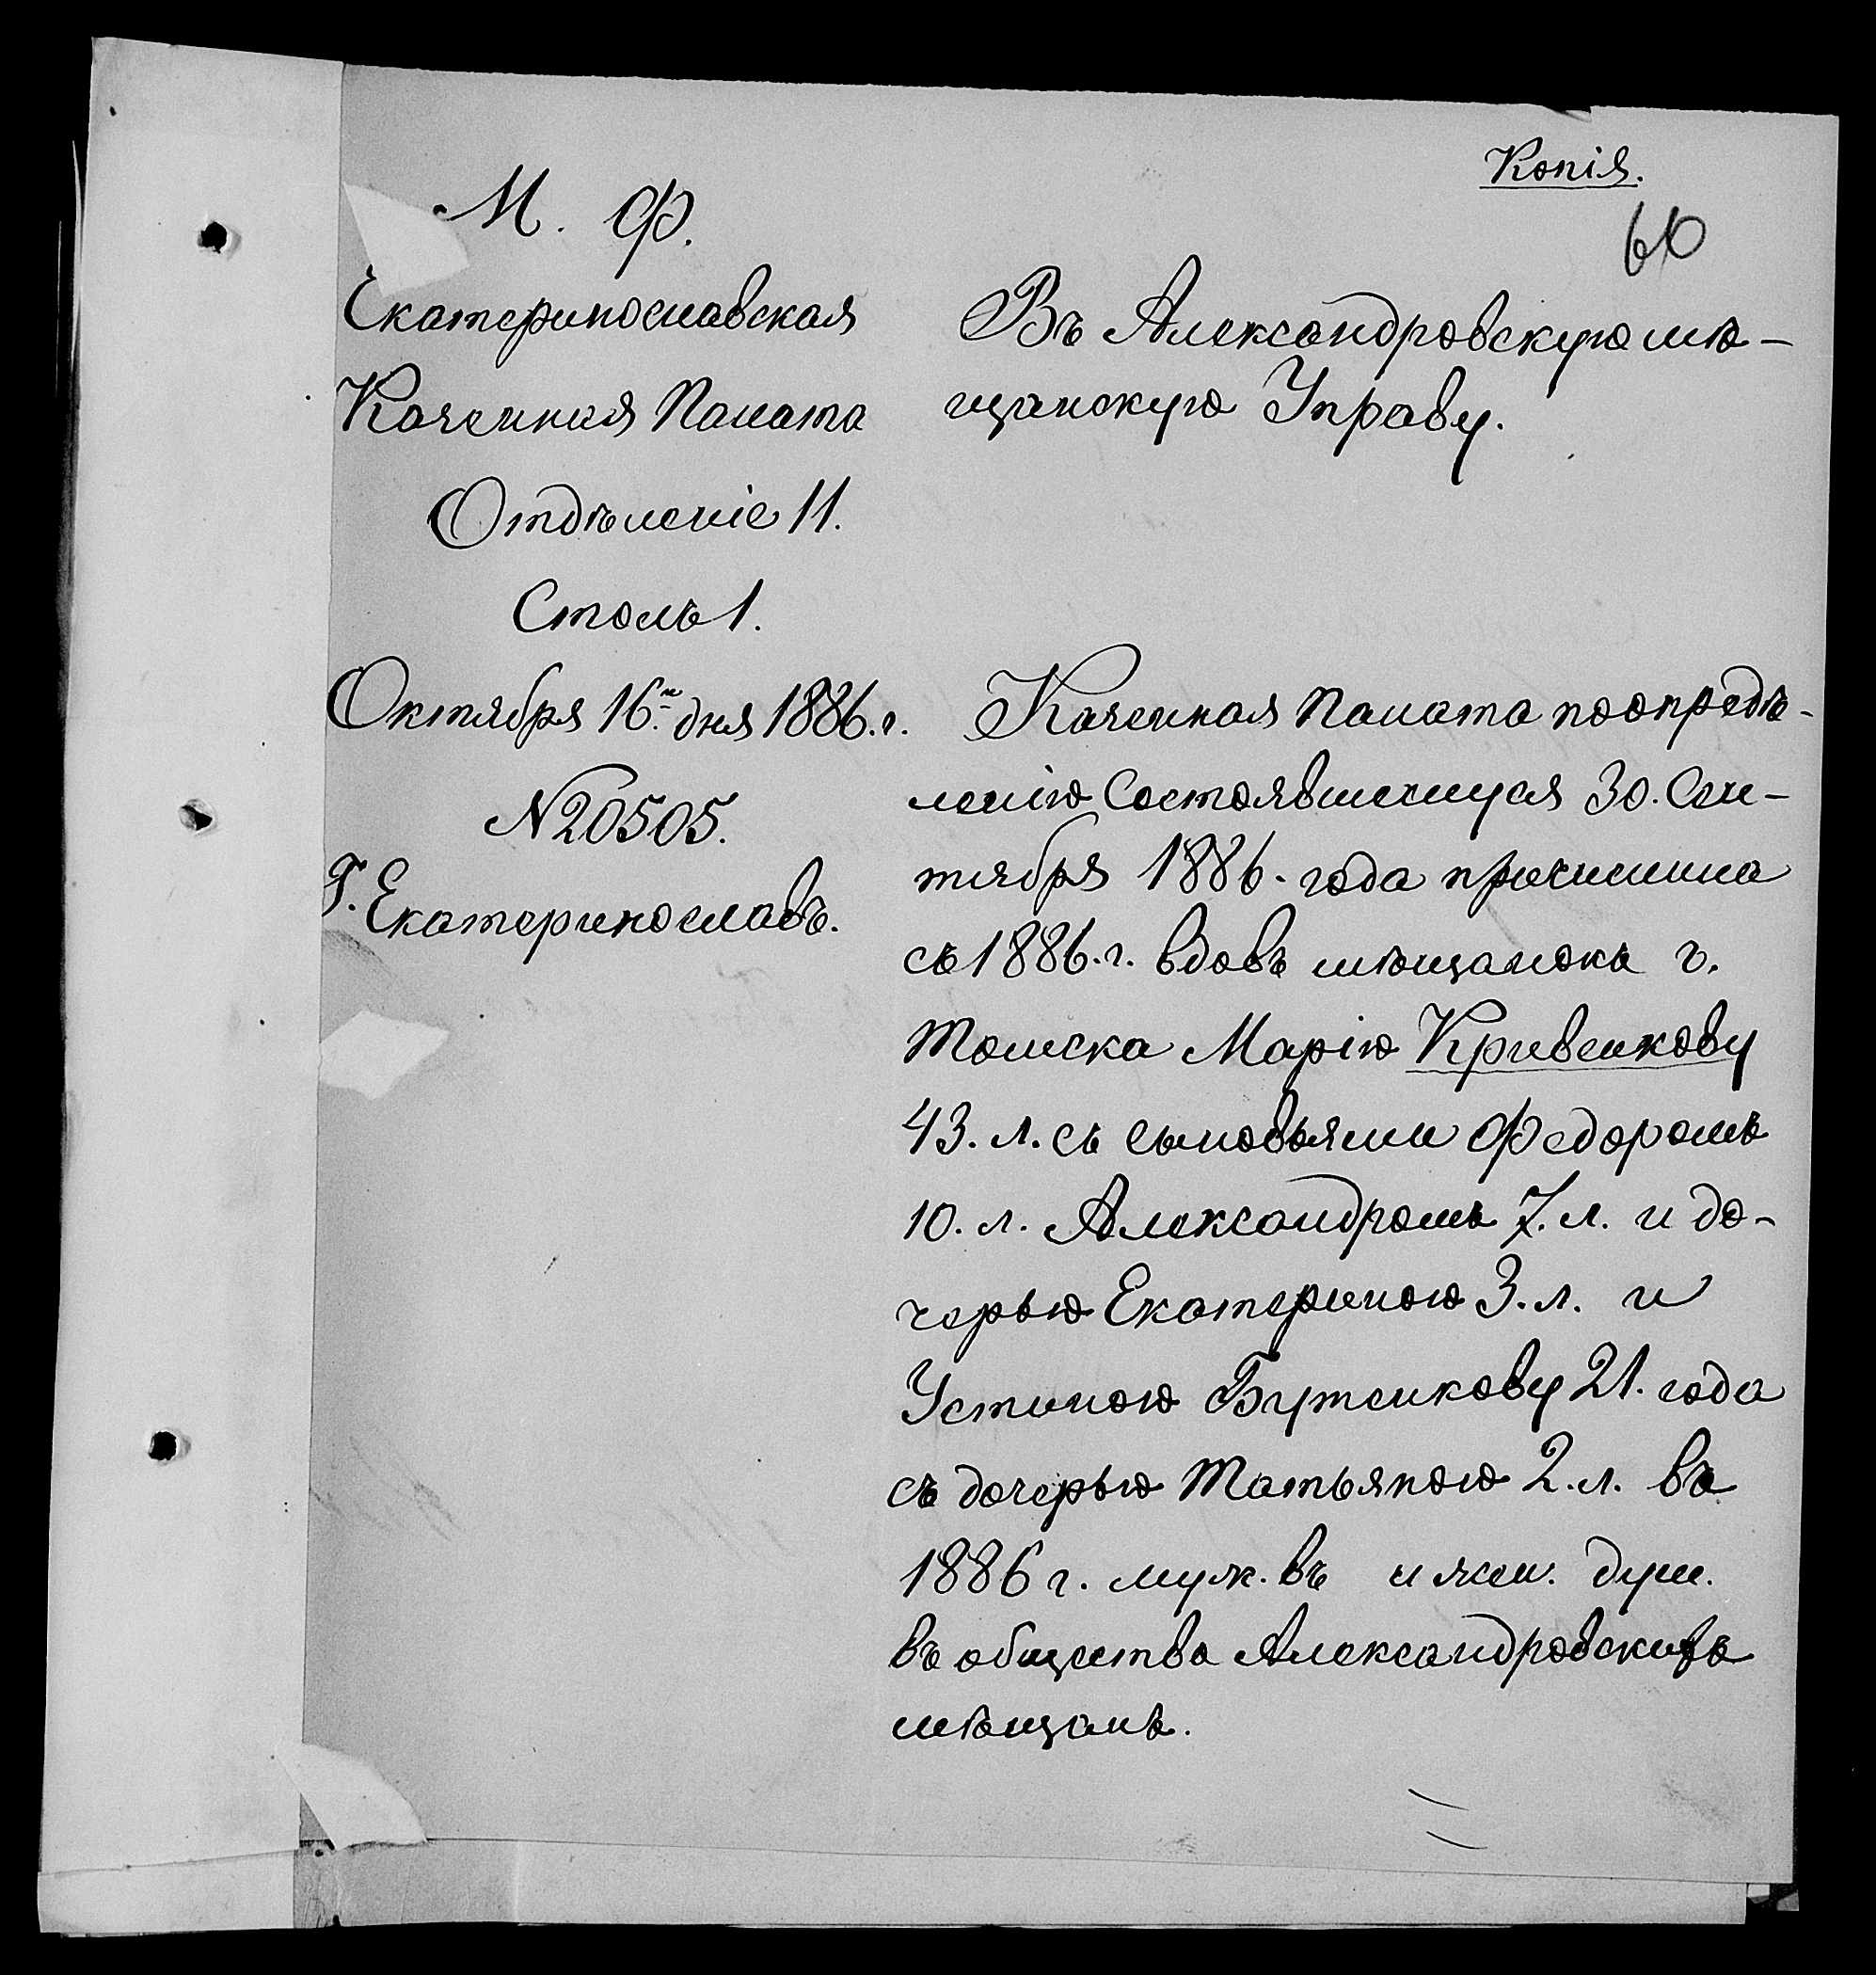 Копія.
60
М. Ф.
Екатеринославская
Казенная Палата
Отдѣленіе 11.
Столъ 1.
Октября 16го дня 1886.г.
№ 20505.
Г. Екатеринославъ.
Въ Александровскую мѣ-
щанскую Управу.
Казенная Палата по опредѣ-
ленію Состоявшемуся 30. Сен-
тября 1886. года причислила
съ 1886.г. вдовъ мѣщанокъ г.
Томска Марію Кривенкову
43. л. съ сыновьями Федоромъ
10. л. Александромъ 7. л. и до-
черью Екатериною 3. л. и
Устиною Бутенкову 21. года
съ дочерью Татьяною 2. л. въ
1886 г. муж. въ и жен. душ.
въ общество Александровскихъ
мѣщанъ.